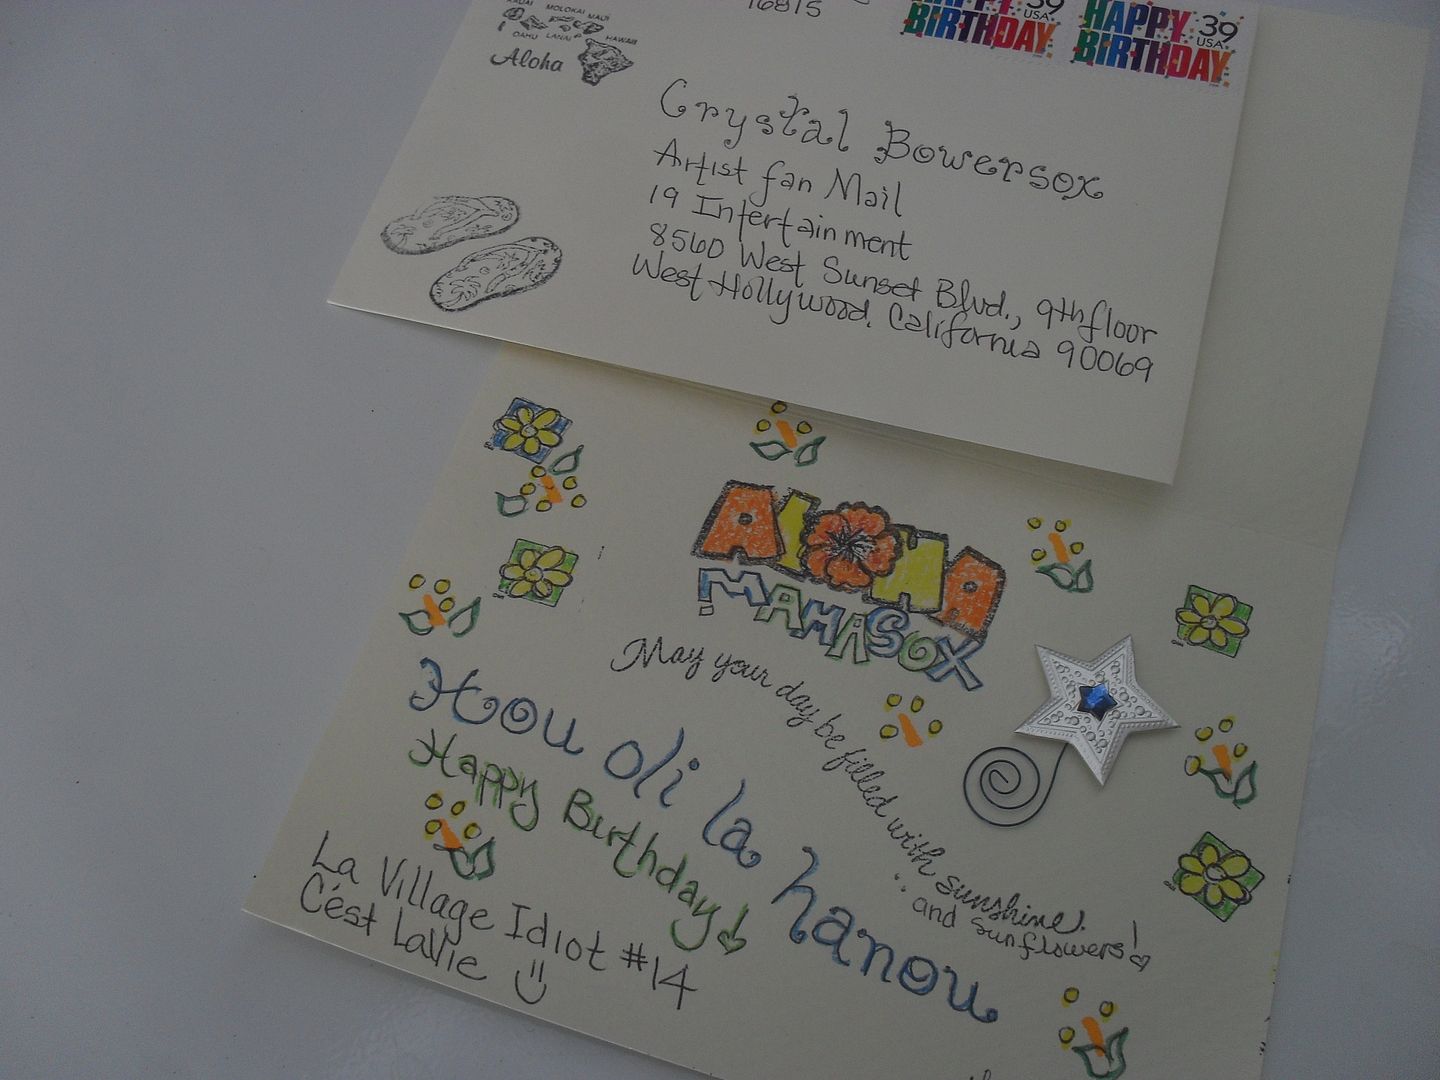 KAUAI MOLOKAI MAUI
OAHU LANAI HAWAII
Aloha
16815
HAPPY 39
USA
BIRTHDAY
HAPPY 39
USA
BIRTHDAY
Crystal Bowersox
Artist fan Mail
19 Intertainment
8560 West Sunset Blvd., 9th floor
West Hollywood. California 90069
ALOHA
MAMASOX!
May your day be filled with sunshine!
..and sunflowers!
Hou oli la hanou
Happy Birthday!
La Village Idiot #14
C'est LaVie